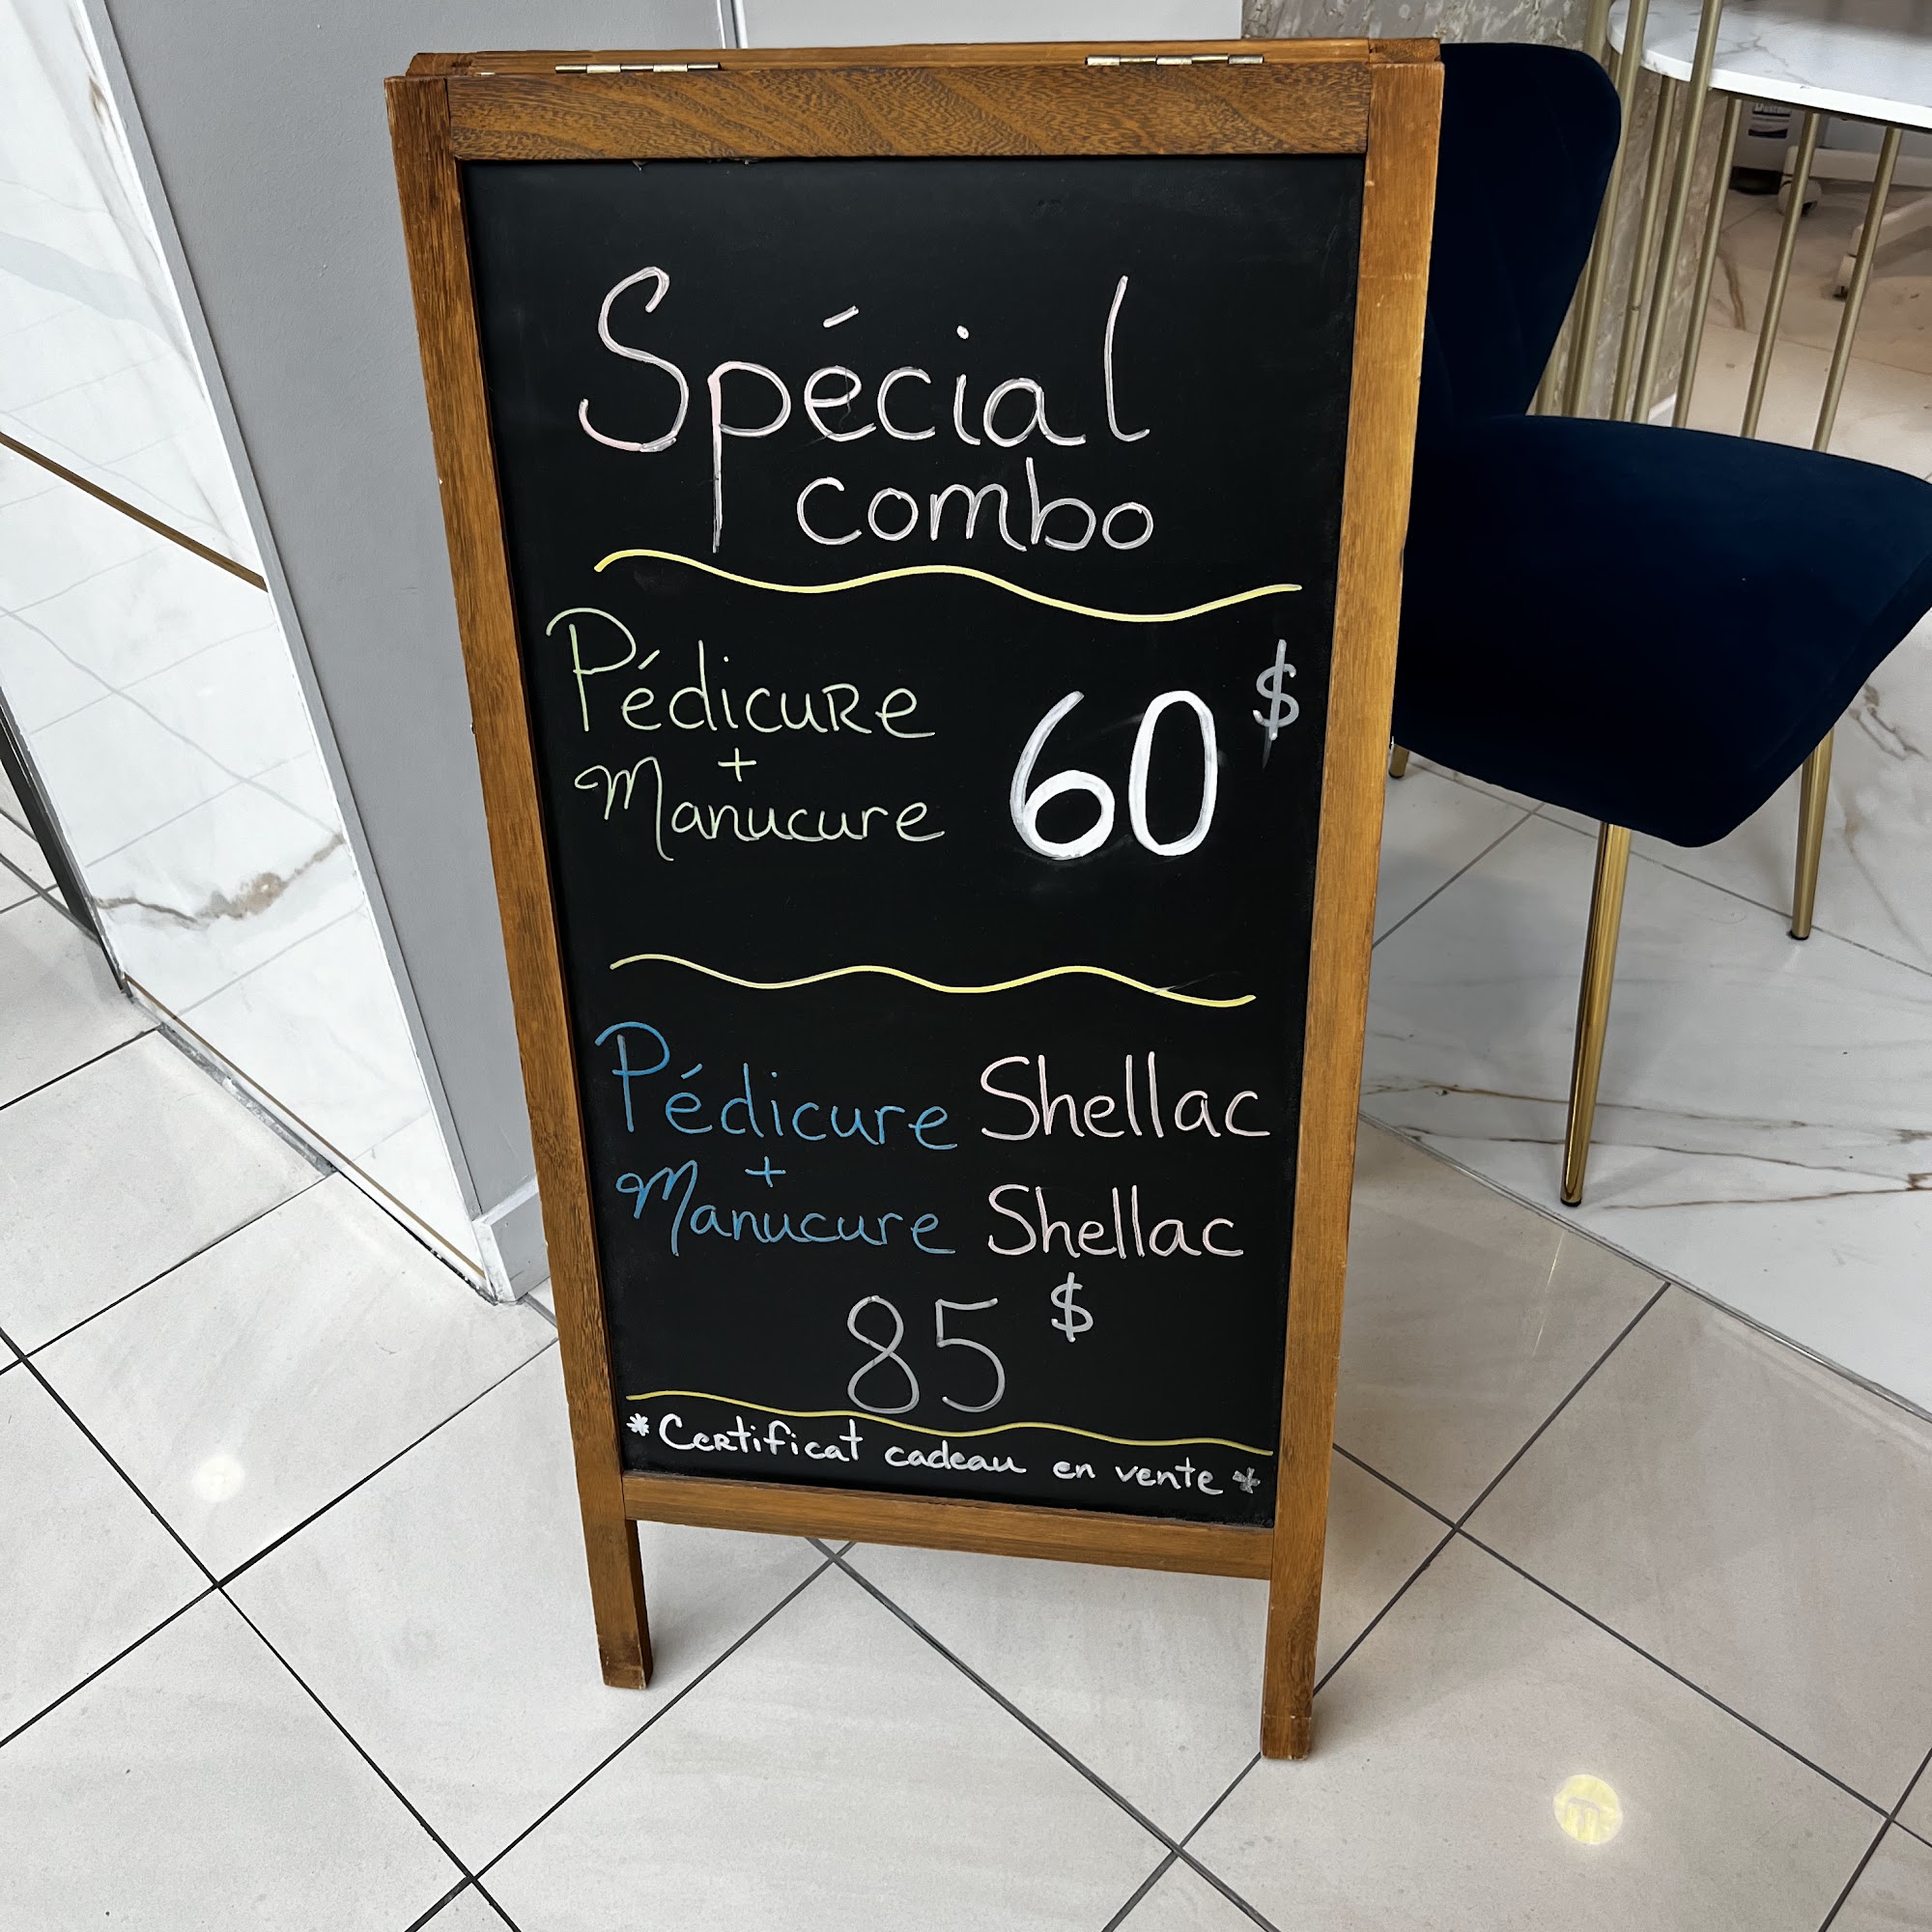 Spécial
combo
Pédicure
+
Manucure
60$
Pédicure Shellac
+
Manucure Shellac
85$
*Certificat cadeau en vente*